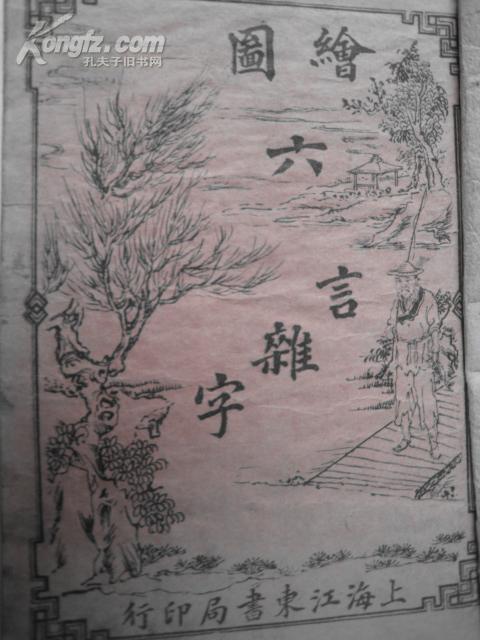 Kongfz.com
孔夫子旧书网
繪圖
六言雜字
上海江東書局印行